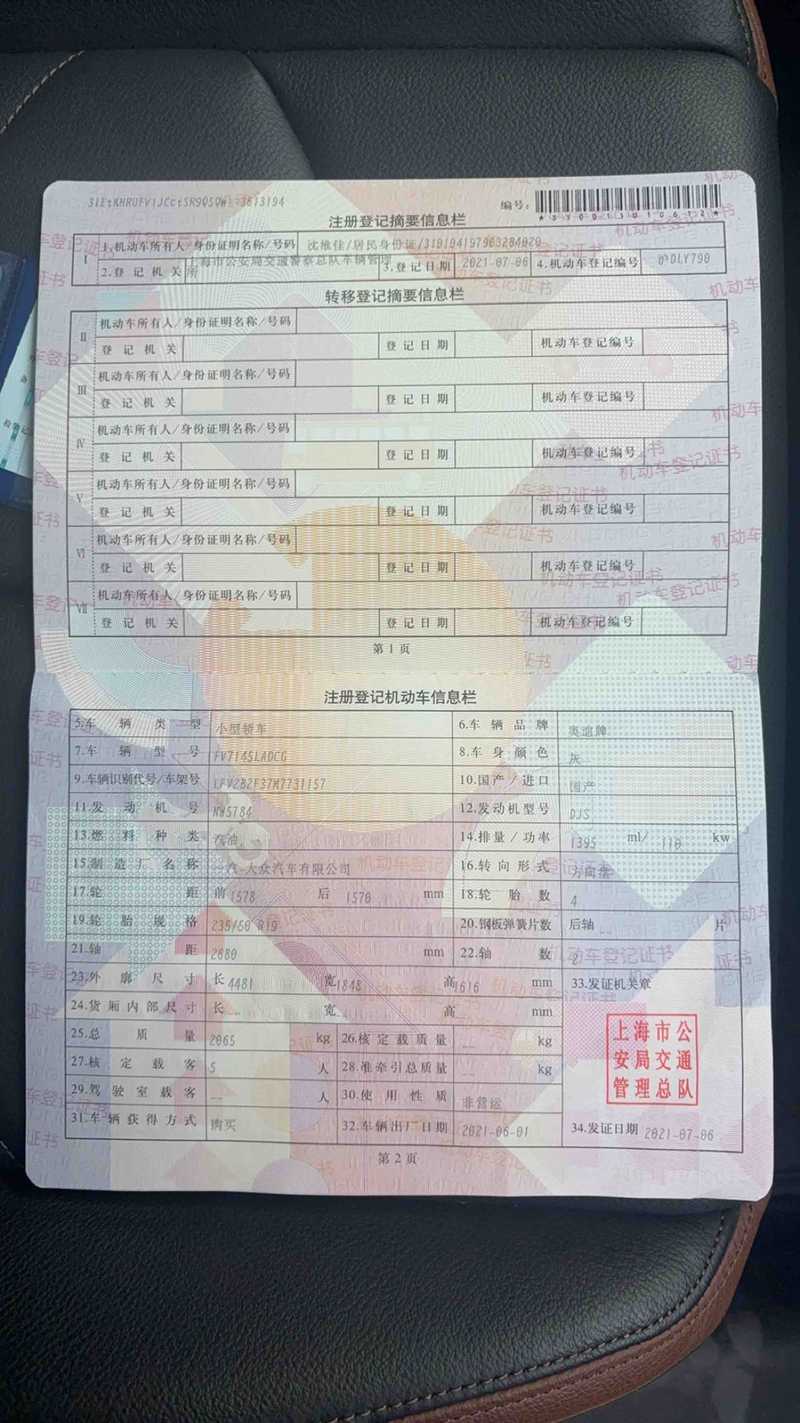 编号:
注册登记摘要信息栏
I 1.机动车所有人/身份证明名称/号码 沈维佳/居民身份证/
2.登记机关 上海市公安局交通警察总队车辆管理所 3.登记日期 2021-07-06 4.机动车登记编号 DLY790
转移登记摘要信息栏
II 机动车所有人/身份证明名称/号码
登记机关 登记日期 机动车登记编号
III 机动车所有人/身份证明名称/号码
登记机关 登记日期 机动车登记编号
IV 机动车所有人/身份证明名称/号码
登记机关 登记日期 机动车登记编号
V 机动车所有人/身份证明名称/号码
登记机关 登记日期 机动车登记编号
VI 机动车所有人/身份证明名称/号码
登记机关 登记日期 机动车登记编号
VII 机动车所有人/身份证明名称/号码
登记机关 登记日期 机动车登记编号
第1页
注册登记机动车信息栏
5.车辆类型 小型轿车 6.车辆品牌 奥迪牌
7.车辆型号 FV7145LADCG 8.车身颜色 灰
9.车辆识别代号/车架号 LFV2B2F37M7731157 10.国产/进口 国产
11.发动机号 NW5784 12.发动机型号 DJS
13.燃料种类 汽油 14.排量/功率 1395 ml/ 110 kw
15.制造厂名称 一汽-大众汽车有限公司 16.转向形式 方向盘
17.轮距 前 1578 后 1570 mm 18.轮胎数 4
19.轮胎规格 235/60 R19 20.钢板弹簧片数 后轴 -- 片
21.轴距 2680 mm 22.轴数 2
23.外廓尺寸 长 4481 宽 1848 高 1616 mm 33.发证机关章
24.货厢内部尺寸 长 -- 宽 高 mm
上海市公
安局交通
管理总队
25.总质量 2065 kg 26.核定载质量 -- kg
27.核定载客 5 人 28.准牵引总质量 -- kg
29.驾驶室载客 -- 人 30.使用性质 非营运
31.车辆获得方式 购买 32.车辆出厂日期 2021-06-01 34.发证日期 2021-07-06
第2页